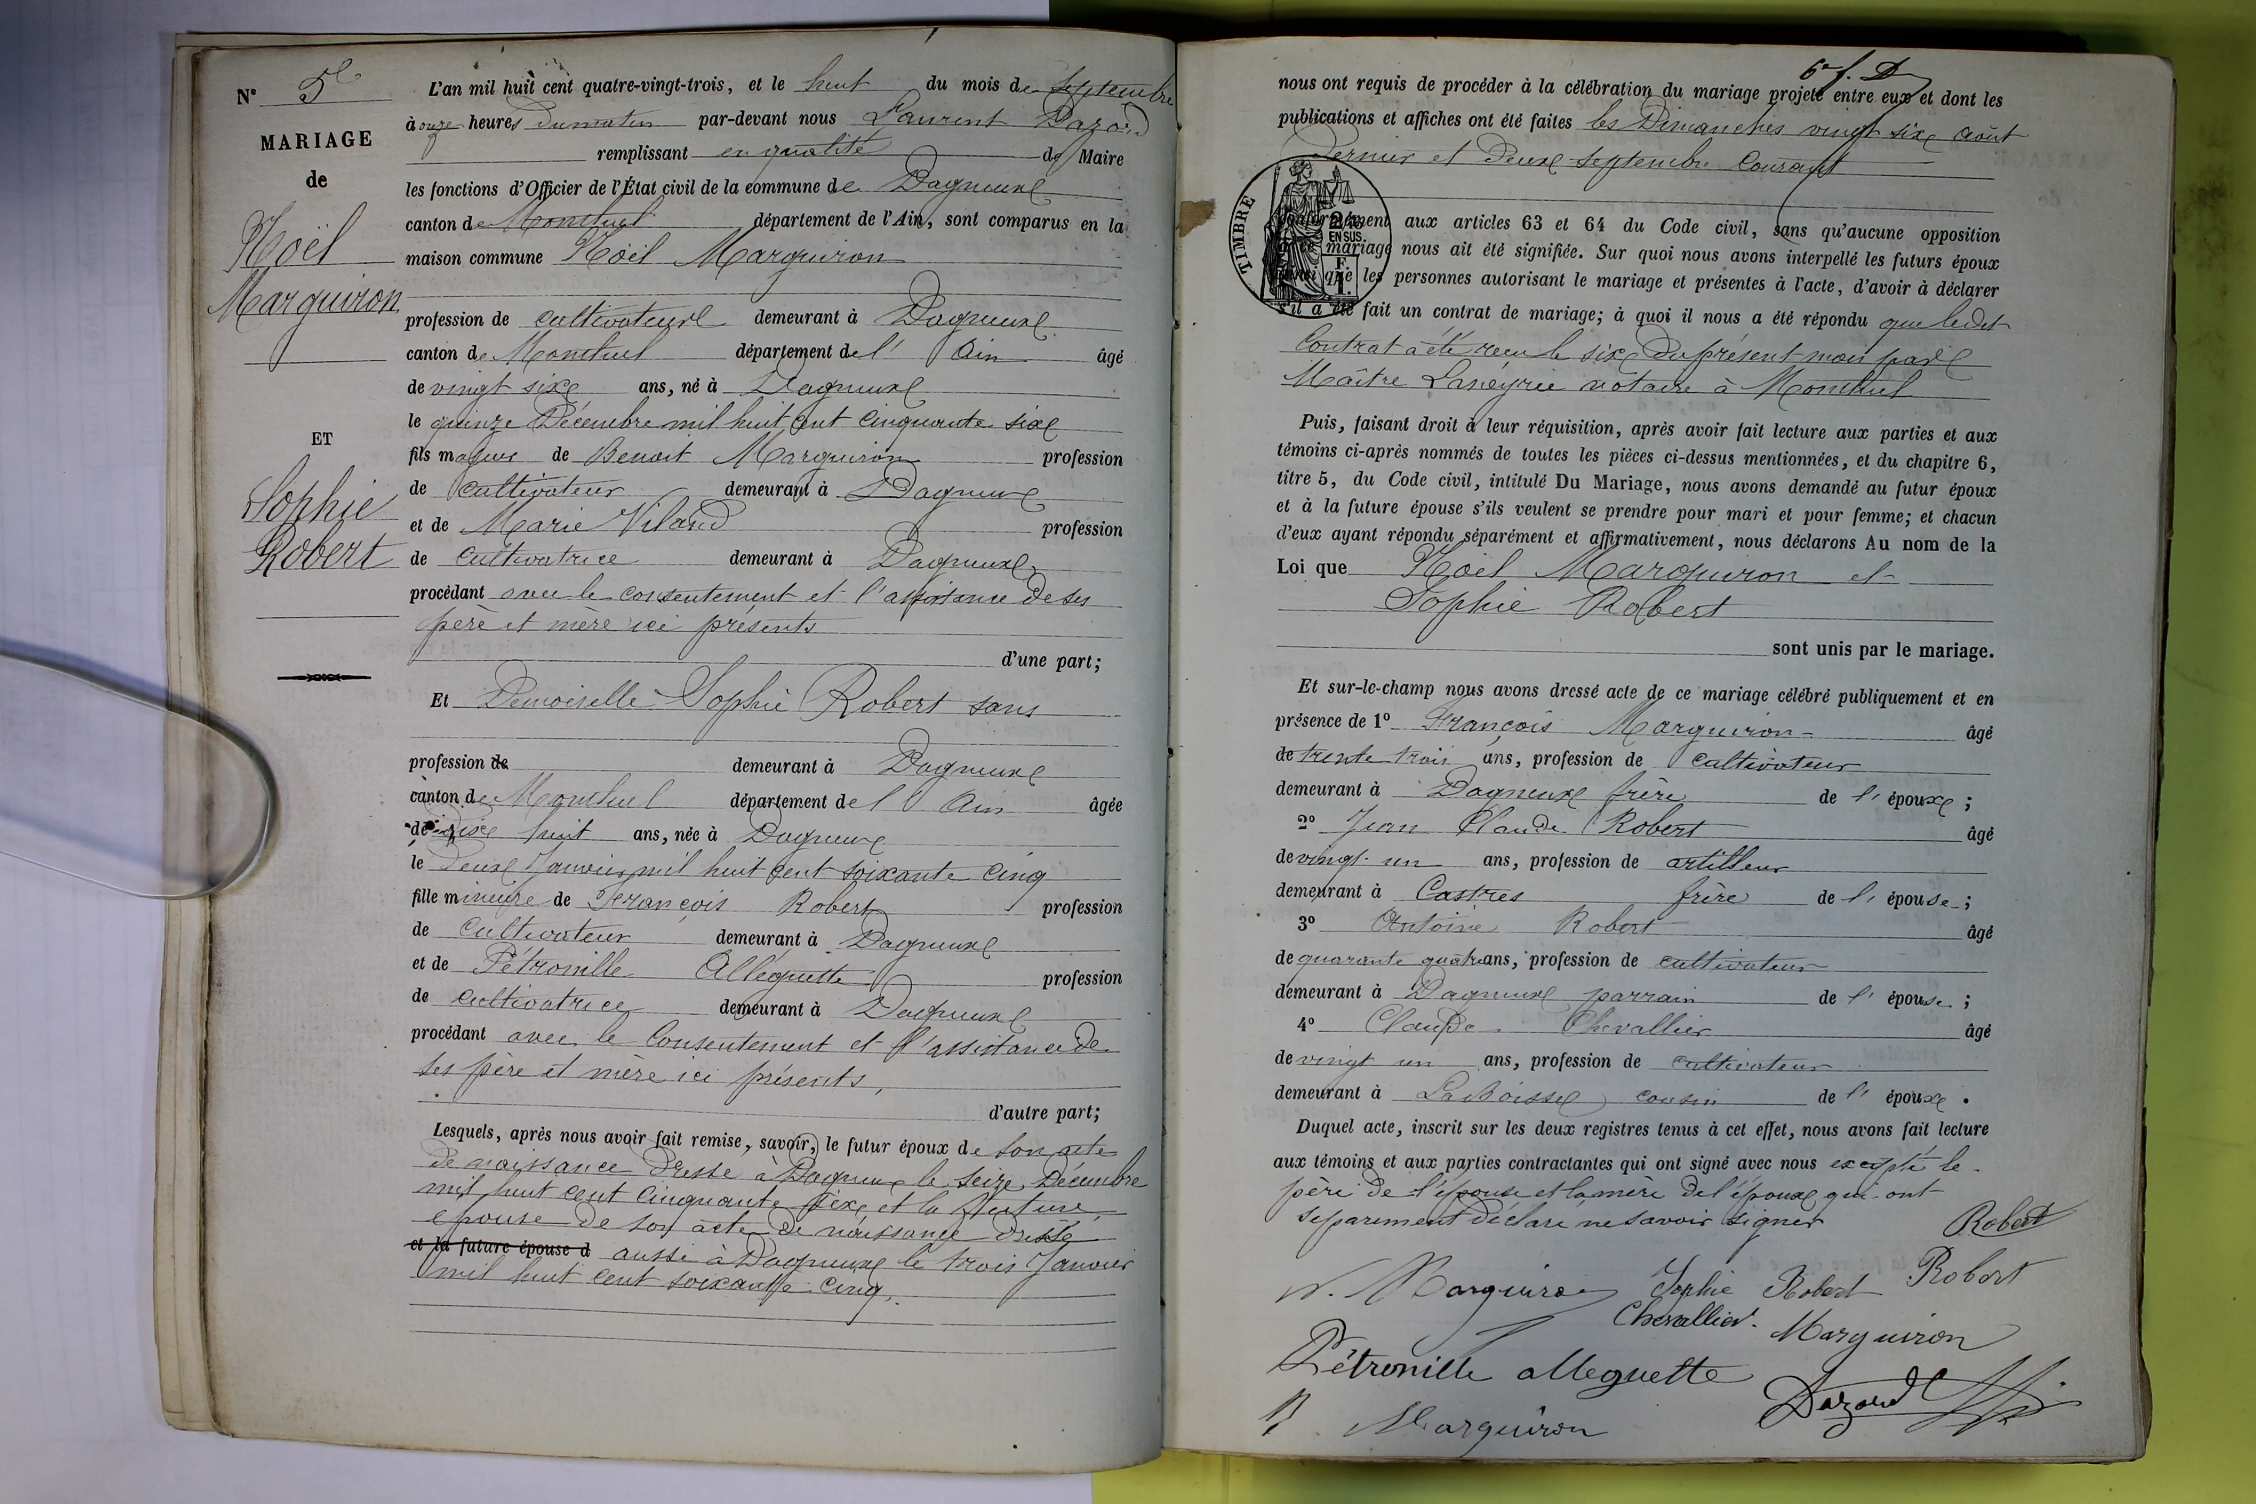 N° 5e
MARIAGE
de
Noël
Marguiron
ET
Sophie
Robert
L'an mil huit cent quatre-vingt-trois, et le huit du mois de Septembre
à onze heures du matin par-devant nous Laurent Dazord
remplissant en qualité de Maire
les fonctions d'Officier de l'État civil de la commune de Dagneux
canton de Montluel département de l'Ain, sont comparus en la
maison commune Noël Marguiron
profession de cultivateur demeurant à Dagneux
canton de Montluel département de l' Ain âgé
de vingt six ans, né à Dagneux
le quinze Décembre mil huit cent cinquante six
fils majeur de Benoit Marguiron profession
de cultivateur demeurant à Dagneux
et de Marie Viland profession
de cultivatrice demeurant à Dagneux
procédant avec le consentement et l'assistance de ses
père et mère ici présents
d'une part;
Et Demoiselle Sophie Robert sans
profession de demeurant à Dagneux
canton de Montluel département de l' Ain âgée
de dix huit ans, née à Dagneux
le deux Janvier mil huit cent soixante cinq
fille mineure de François Robert profession
de cultivateur demeurant à Dagneux
et de Pétronille Alléguette profession
de cultivatrice demeurant à Dagneux
procédant avec le consentement et l'assistance de
ses père et mère ici présents,
d'autre part;
Lesquels, après nous avoir fait remise, savoir, le futur époux de son acte
de naissance dressé à Dagneux le seize Décembre
mil huit cent cinquante six et la future
épouse de son acte de naissance dressé
et la future épouse d aussi à Dagneux le trois Janvier
mil huit cent soixante cinq.
6e f. D
nous ont requis de procéder à la célébration du mariage projeté entre eux et dont les
publications et affiches ont été faites les Dimanches vingt six août
dernier et deux septembre courant
TIMBRE
2/10
EN SUS.
conformément aux articles 63 et 64 du Code civil, sans qu'aucune opposition
mariage nous ait été signifiée. Sur quoi nous avons interpellé les futurs époux
ainsi que les personnes autorisant le mariage et présentes à l'acte, d'avoir à déclarer
s'il a été fait un contrat de mariage; à quoi il nous a été répondu que ledit
contrat a été reçu le six du présent mois par
Maître Lanéyrie notaire à Montluel
Puis, faisant droit à leur réquisition, après avoir fait lecture aux parties et aux
témoins ci-après nommés de toutes les pièces ci-dessus mentionnées, et du chapitre 6,
titre 5, du Code civil, intitulé Du Mariage, nous avons demandé au futur époux
et à la future épouse s'ils veulent se prendre pour mari et pour femme; et chacun
d'eux ayant répondu séparément et affirmativement, nous déclarons Au nom de la
Loi que Noël Marguiron et
Sophie Robert
sont unis par le mariage.
Et sur-le-champ nous avons dressé acte de ce mariage célébré publiquement et en
présence de 1° François Marguiron âgé
de trente trois ans, profession de cultivateur
demeurant à Dagneux frère de l' époux ;
2° Jean Claude Robert âgé
de vingt un ans, profession de artilleur
demeurant à Castres frère de l' épouse ;
3° Antoine Robert âgé
de quarante quatre ans, profession de cultivateur
demeurant à Dagneux parrain de l' épouse ;
4° Claude Chevallier âgé
de vingt un ans, profession de cultivateur
demeurant à La Boisse cousin de l' époux .
Duquel acte, inscrit sur les deux registres tenus à cet effet, nous avons fait lecture
aux témoins et aux parties contractantes qui ont signé avec nous excepté le
père de l'épouse et la mère de l'époux qui ont
séparement déclaré ne savoir signer
Robert
N. Marguiron Sophie Robert Robert
Chevallier. Marguiron
Pétronille alleguette
Dazord
B Marguiron